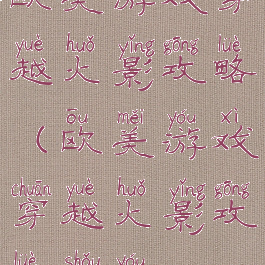 欧美游戏穿
yuè huǒ yǐng gōng lüè
越火影攻略
ōu měi yóu xì
(欧美游戏
chuān yuè huǒ yǐng gōng
穿越火影攻
lüè shǒu yóu